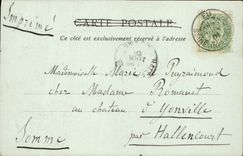 Imprimé
CARTE POSTALE
Ce côté est exclusivement réservé à l'adresse
Mademoiselle Marie de Puyraimond
chez Madame Romanet
au château d'Yonville
par Hallencourt
Somme